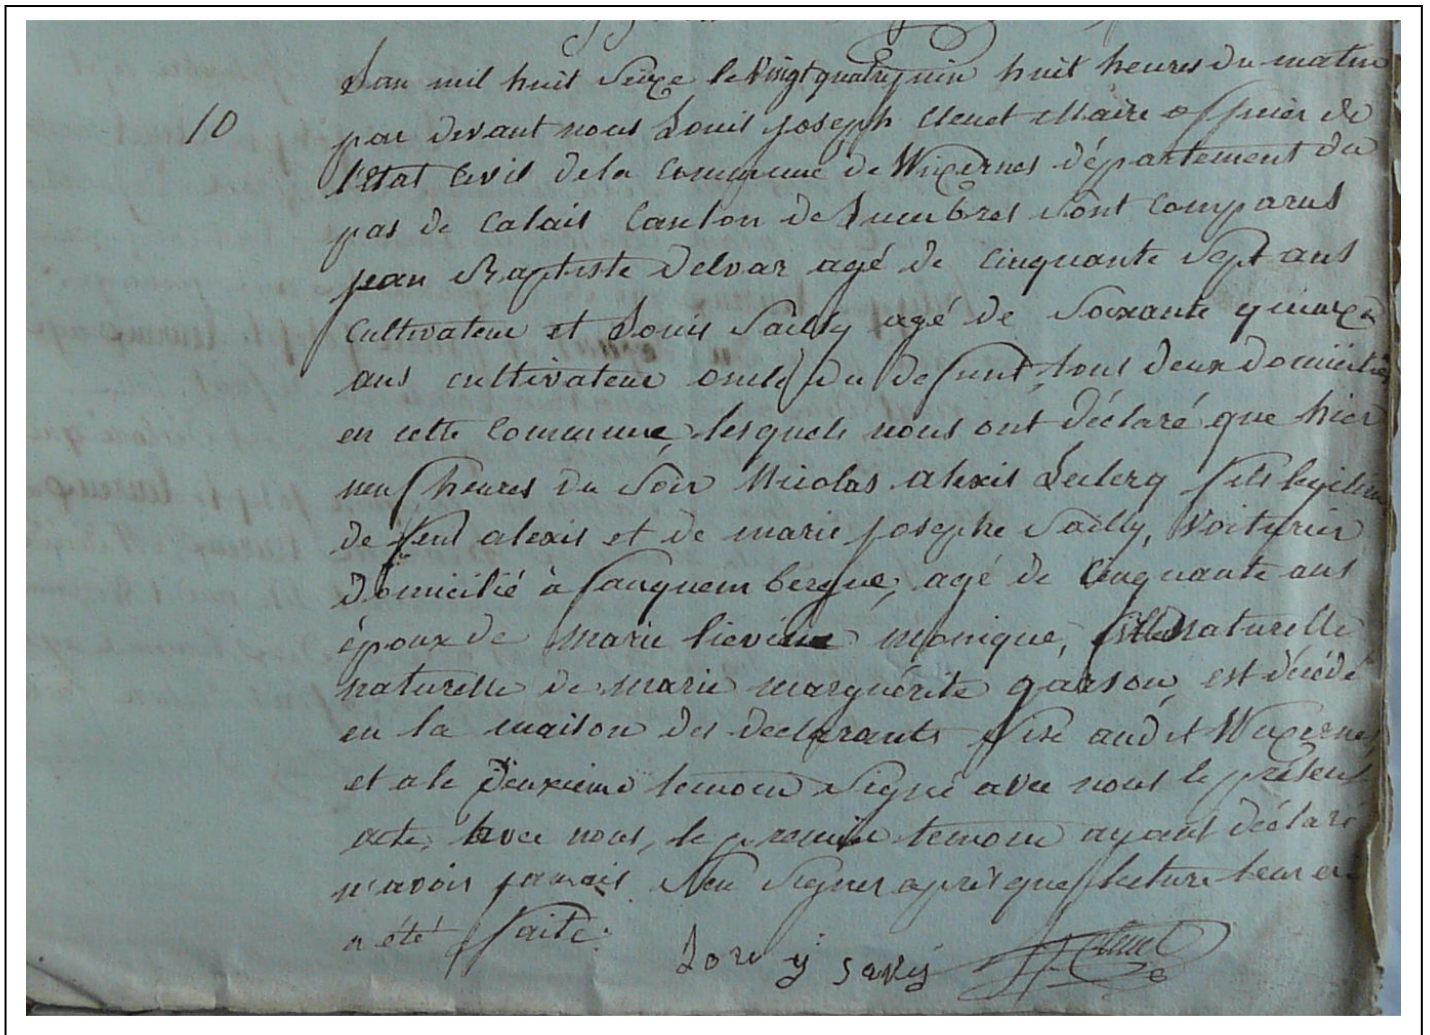 10
L'an mil huit Seize le Vingt quatre juin huit heures du matin
par devant nous Louis joseph Clenet Maire officier de
l'Etat Civil de la Commune de Wizernes département du
pas de Calais Canton de Lumbres Sont Comparus
jean Baptiste Delvar agé de Cinquante Sept ans
Cultivateur et Louis Sailly agé de Soixante quinze
ans cultivateur oncle du defunt tous deux domiciliés
en cette Commune lesquels nous ont déclaré que hier
neuf heures du Soir Nicolas alexis Leclercq fils legitime
de feu alexis et de marie josephe Sailly, Voiturier
domicilié à fauquembergue, agé de Cinquante ans
époux de marie lievine monique, fille naturelle
naturelle de marie marguérite garson, est décédé
en la maison des declarants Sise audit Wizernes
et a le deuxieme temoin Signé avec nous le présent
acte, avec nous, le premier temoin ayant déclaré
n'avoir jamais Seu Signer après que lecture leur en
a été faite.